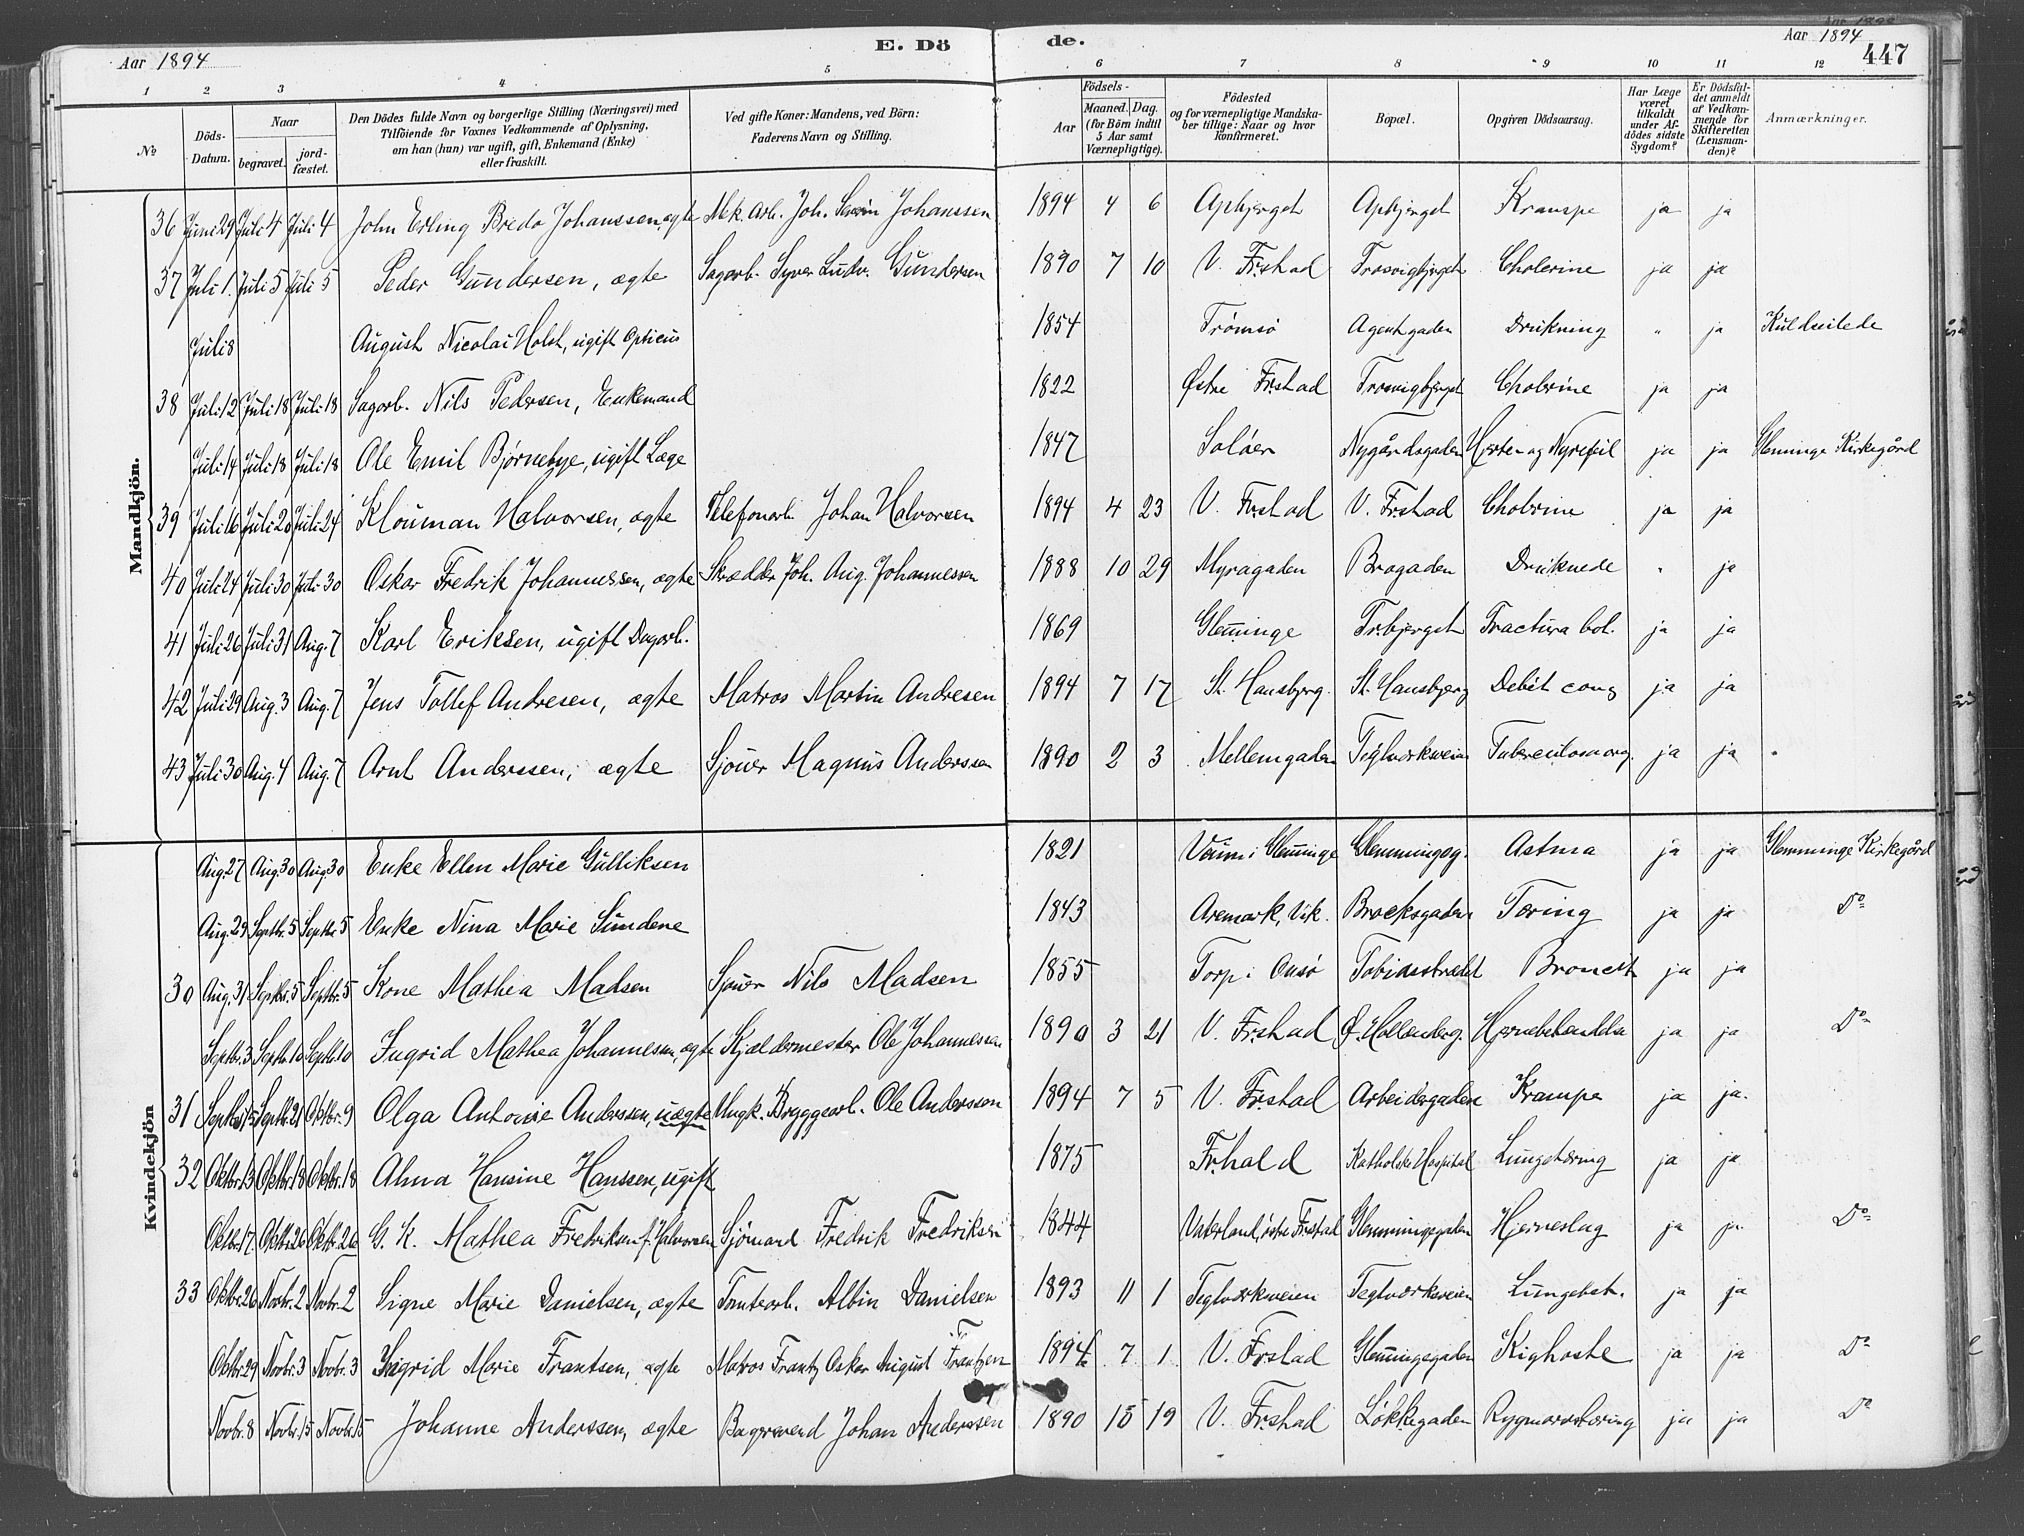 Aar 1894 E. Dö de. Aar 1894 447
1 2 3 4 5 6 7 8 9 10 11 12
№ Döds-Datum. Naar begravet. jord-fæstet. Den Dödes fulde Navn og borgerlige Stilling (Næringsvei) med Tilföiende for Voxnes Vedkommende af Oplysning, om han (hun) var ugift, gift, Enkemand (Enke) eller fraskilt. Ved gifte Koner: Mandens, ved Börn: Faderens Navn og Stilling. Födsels- Aar Maaned. Dag. (for Börn indtil 5 Aar samt Værnepligtige). Födested og for værnepligtige Mandska-ber tillige: Naar og hvor konfirmeret. Bopæl. Opgiven Dödsaarsag. Har Læge været tilkaldt under Af-dödes sidste Sygdom? Er Dödsfal-det anmeldt af Vedkom-mende for Skifteretten (Lensman-den)? Anmærkninger.
Mandkjön.
36 Juni 29 Juli 4 Juli 4 John Erling Breda Johanssen, ægte Mek. Arb. Joh. Severin Johanssen 1894 4 6 Apbjerget Apbjerget Krampe ja ja
37 Juli 1. Juli 5 Juli 5 Peder Gundersen, ægte Sagarb. Syver Ludv. Gundersen 1890 7 10 V. Fr.stad Trosvigbjerget Cholerine ja ja
Juli 8 August Nicolai Holst, ugift Opticus 1854 Trømsø Agentgaden Drukning " ja Kuldseilede
38 Juli 12 Juli 18 Juli 18 Sagarb. Nils Pedersen, Enkemand 1822 Østre Fr.stad Trosvigbjerget Cholerine ja ja
Juli 14 Juli 18 Juli 18 Ole Emil Bjørnebye, ugift Læge 1847 Soløer Nygårdsgaden Hjerte- og Nyrefeil ja ja Glemminge Kirkegård
39 Juli 16 Juli 20 Juli 24 Klouman Halvorsen, ægte Telefonarb. Johan Halvorsen 1894 4 23 V. Fr.stad V. Fr.stad Cholerine ja ja
40 Juli 24 Juli 30 Juli 30 Oskar Fredrik Johannessen, ægte Skrædder Joh. Aug. Johannessen 1888 10 29 Myragaden Brogaden Druknede " ja
41 Juli 26 Juli 31 Aug. 7 Karl Eriksen, ugift Dagarb. 1869 Glemminge Tr.bjerget Fractura ja ja
42 Juli 29 Aug. 3 Aug. 7 Jens Tollef Andresen, ægte Matros Martin Andresen 1894 7 17 St. Hansbjerg. St. Hansbjerg Debit cong ja ja
43 Juli 30 Aug. 4 Aug. 7 Arnt Anderssen, ægte Sjouer Magnus Anderssen 1890 2 3 Mellemgaden Teglværksveien ja ja
Kvindekjön
Aug. 27 Aug. 30 Aug. 30 Enke Ellen Marie Gulliksen 1821 Glemminge Glemmingeg. Astma ja ja Glemminge Kirkegård
Aug. 29 Septbr. 5 Septbr. 5 Enke Nina Marie Sundene 1843 Aremark, Vik. Brocksgaden Tæring ja ja Do
30 Aug. 31 Septbr. 5 Septbr. 5 Kone Mathea Madsen Sjouer Nils Madsen 1855 Torp i Onsø Tobiasstrædet Bronchit ja ja
Septbr. 3 Septbr. 10 Septbr. 10 Ingrid Mathea Johannessen, ægte Ole Johannessen 1890 3 21 V. Fr.stad Ø. Hollenderg. Hjernebetændelse ja ja Do
31 Septbr. 15 Septbr. 21 Oktbr. 9 Olga Antonie Anderssen, uægte Ungk. Bryggearb. Ole Anderssen 1894 7 5 V. Fr.stad Arbeidergaden Krampe ja ja.
32 Oktbr. 13 Oktbr. 18 Oktbr. 18 Alma Hansine Hanssen, ugift 1875 Fr.hald Katholske Hospital Lungetæring ja ja
Oktbr. 17. Oktbr. 26 Oktbr. 26 G. K. Mathea Fredriksen f. Halvorsen Sjömand Fredrik Fredriksen 1844 Vaterland, østre Fr.stad Glemmingegaden Hjerneslag ja ja Do
33 Oktbr. 26 Novbr. 2 Novbr. 2 Signe Marie Danielsen, ægte Tomtearb. Albin Danielsen 1893 11 1 Teglværksveien Teglværksveien Lungebet. ja ja
Oktbr. 29 Novbr. 3 Novbr. 3 Sigrid Marie Frantsen, ægte Matros Frantz Oskar August Frantzen 1894 7 1 V. Fr.stad Glemmingegaden Kighoste ja ja Do
Novbr. 8 Novbr. 15 Novbr. 15 Johanne Anderssen, ægte Bagersvend Johan Anderssen 1890 10 19 V. Fr.stad Løkkegaden Rygmarvstæring ja ja Do